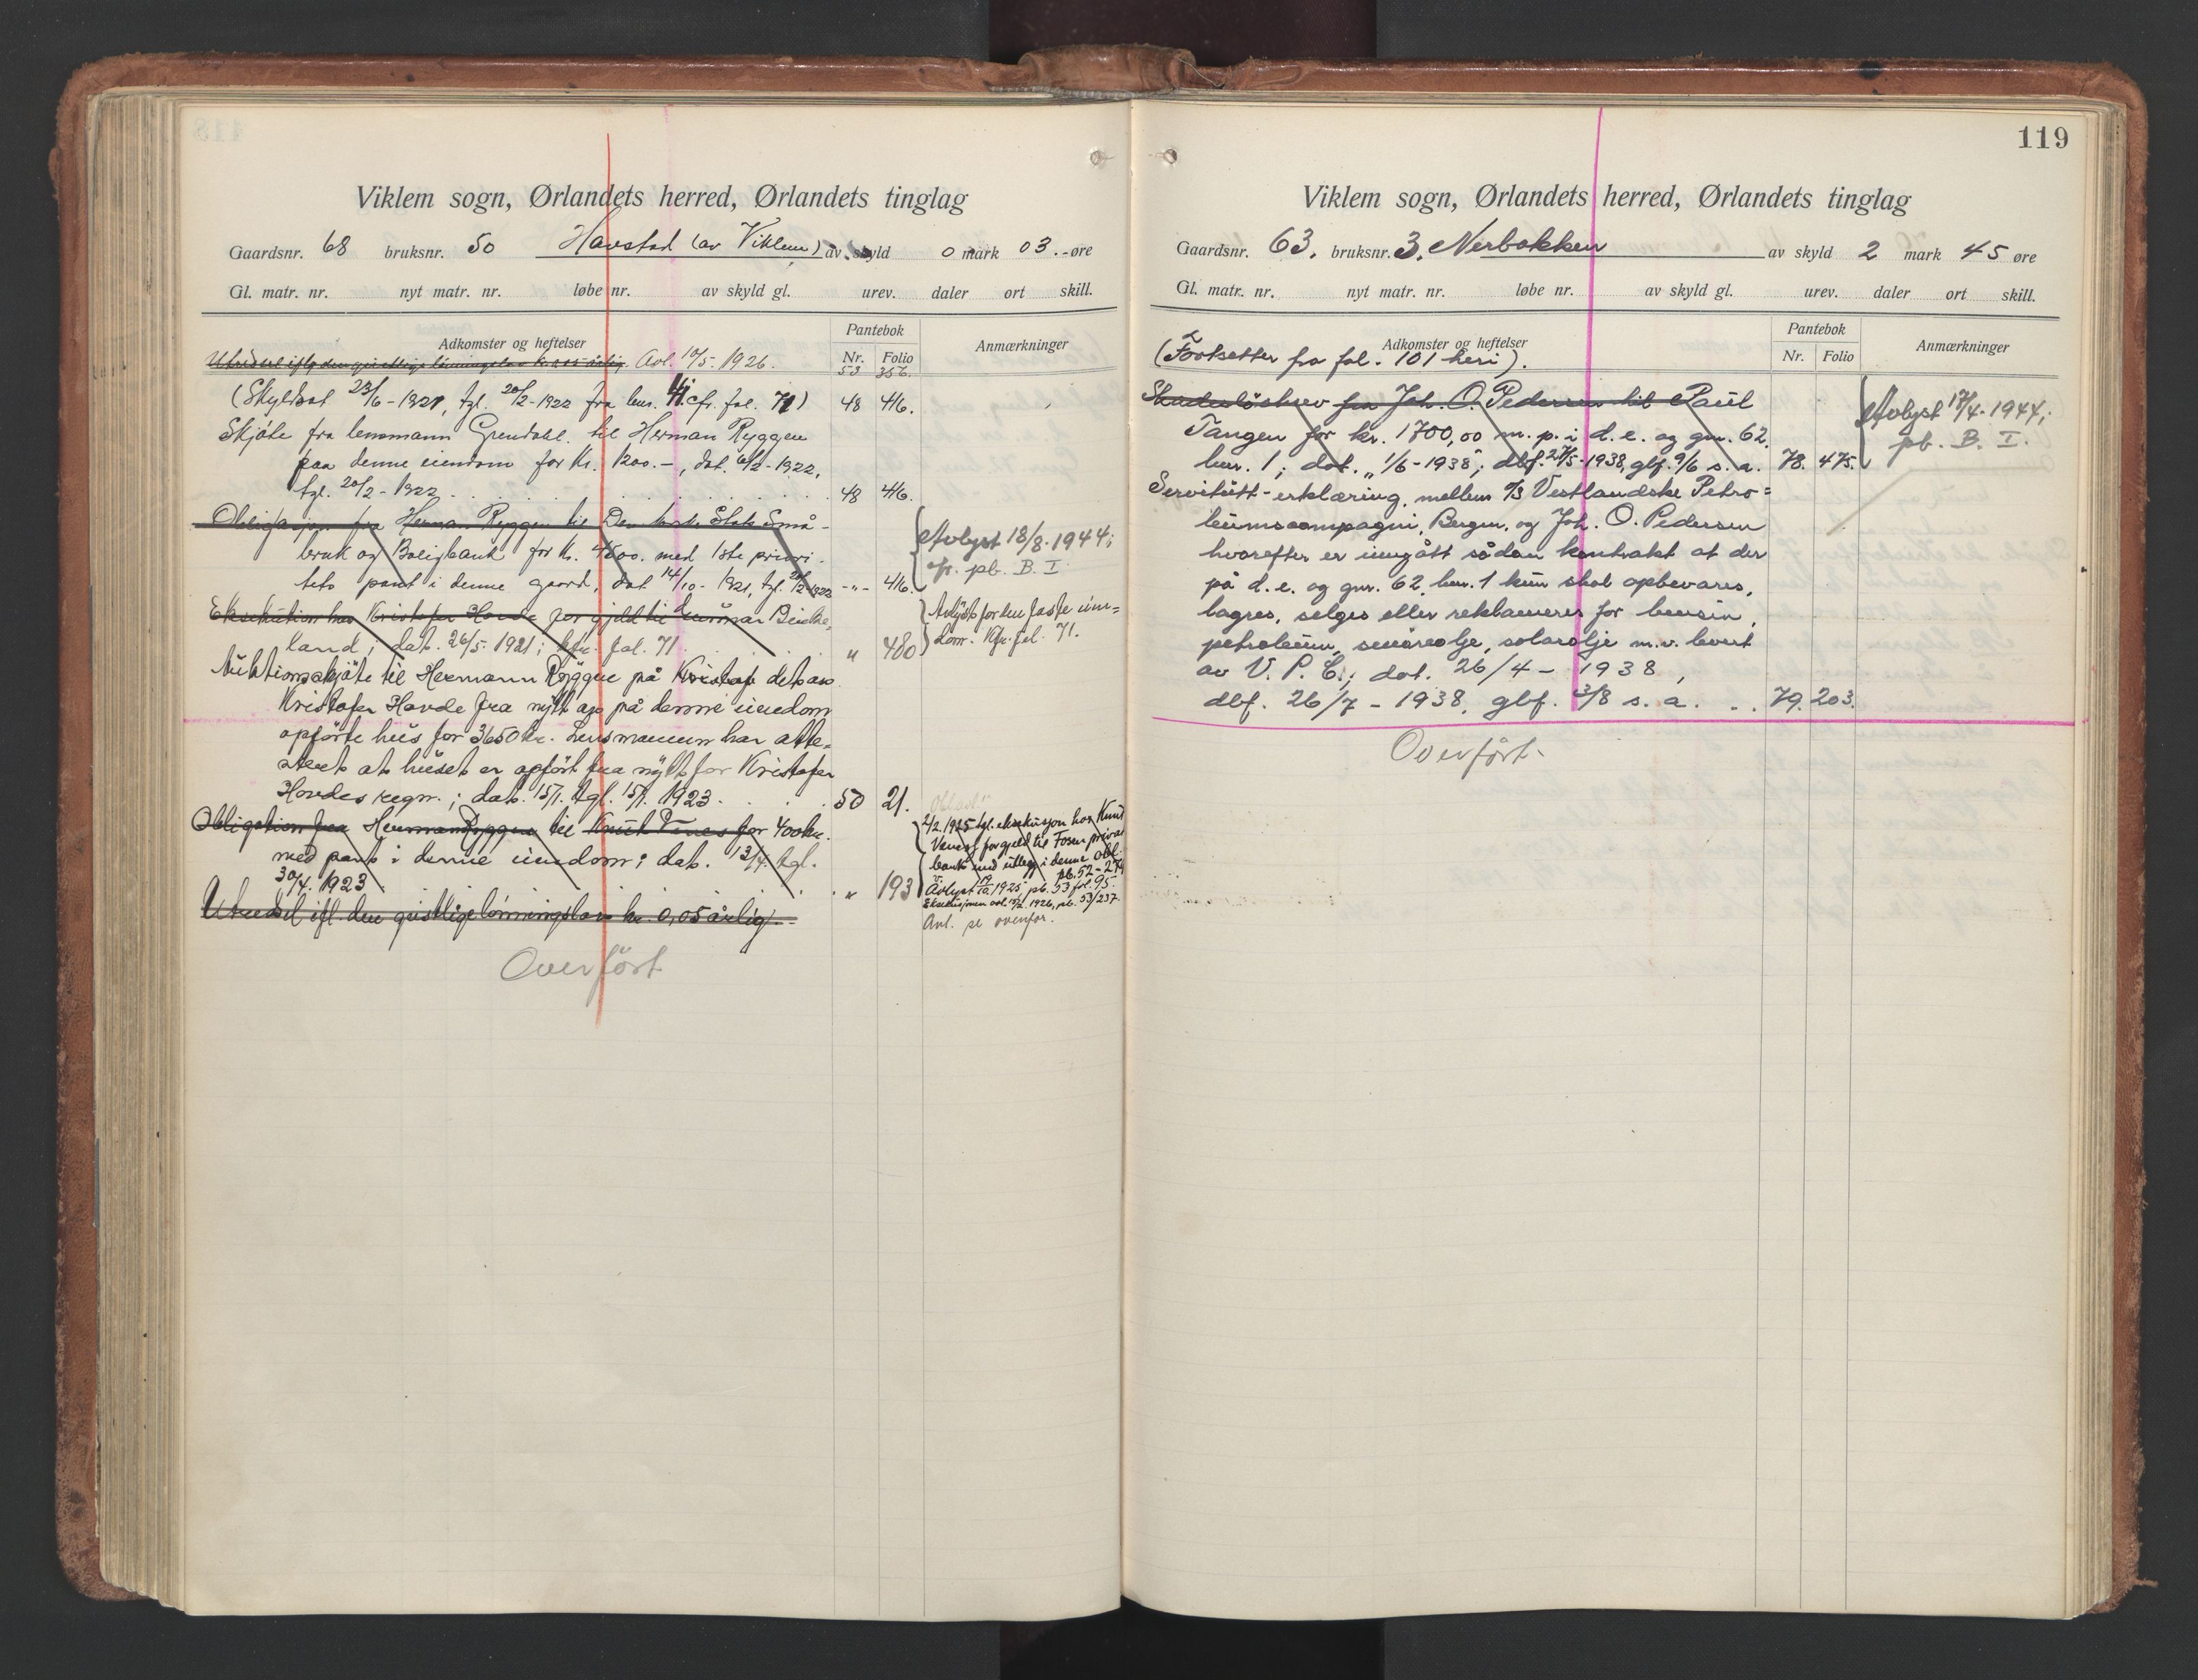 Viklem sogn, Ørlandets herred, Ørlandets tinglag
Gaardsnr. 68 bruksnr. 50 Havstad (av Viklem) av skyld 0 mark 03 øre
Gl. matr. nr. nyt matr. nr. løbe nr. av skyld gl. urev. daler ort skill.
Adkomster og heftelser
Pantebok
Nr. Folio
Anmærkninger
Utredsel ifølg den geistlige lønningslov kr. 0.05 årlig. Avl. 10/5. 1926. 53 356.
(Skyldsat 23/6-1921, tgl. 20/2-1922 fra bnr. 4. cfr. fol. 71) 48 416.
Skjøte fra lensmann Grendahl til Herman Ryggen
paa denne eiendom for kr. 1200.-, dat. 6/2-1922,
tgl. 20/2-1922 48 416.
Obligasjon fra Herman Ryggen til Den norske Stats Små-
bruk og Boligbank for kr. 4500. med 1ste priori-
tets pant i denne gaard, dat 14/10-1921, tgl. 20/2 1922 -"- 416.
Avlyst 18/8. 1944;
cfr. pb. B. I.
Eksekution hos Kristofer Hovde for gjeld til Gunnar Beich-
land; dat. 26/5. 1921; kfr. fol. 71 " 480
Avlyst for den faste eien=
dom. Kfr. fol. 71.
Auktionsskjøte til Hermann Ryggen på Kristof det av
Kristofer Hovde fra nytt av på denne eiendom
opførte hus for 3650 kr. Lensmannen har atte-
stert at huset er opført fra nytt for Kristofer
Hovdes regn.; dat. 15/1. tgl. 15/1. 1923 50 21.
Obligation fra Herman Ryggen til Knut Veness for 400 kr.
med pant i denne eiendom; dat. 13/4. tgl.
30/4. 1923 " 193
2/2 1925 tgl. eksekusjon hos Knut
Veness for gjeld til Fosen privat
bank med utlegg i denne obl.
pb. 52-274
Avlyst 19/10. 1925, pb. 53 fol. 95.
Eksekusjonen avl. 1926, pb. 53/237.
Utredsel ifl. den geistlige lønningslov kr. 0,05 årlig.
Avl. se ovenfor.
Overført
119
Viklem sogn, Ørlandets herred, Ørlandets tinglag
Gaardsnr. 63. bruksnr. 3. Nerbakken av skyld 2 mark 45 øre
Gl. matr. nr. nyt matr. nr. løbe nr. av skyld gl. urev. daler ort skill.
Adkomster og heftelser
Pantebok
Nr. Folio
Anmærkninger
(Fortsetter fra fol. 101 heri).
Skadesløsbrev fra Joh. O. Pedersen til Paul
Tangen for kr. 1700,00 m. p. i d. e. og gnr. 62.
bnr. 1; dat. 1/6-1938; dbf. 27/5-1938, glf. 9/6 s. a. 78. 475.
Avlyst 17/4. 1944;
pb. B. I.
Servitutt-erklæring mellem A/S Vestlandske Petro=
leumscompagni, Bergen, og Joh. O. Pedersen
hvorefter er inngått sådan kontrakt at der
på d. e. og gnr. 62, bnr. 1 kun skal opbevares,
lagres, selges eller reklameres for bensin,
petroleum, smøreolje, solarolje m.v. levert
av V. P. C.; dat. 26/4-1938,
dbf. 26/7-1938, glf. 3/8 s. a. 79. 203.
Overført